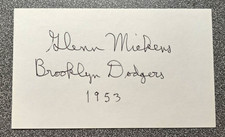 Glenn Mickens
Brooklyn Dodgers
1953